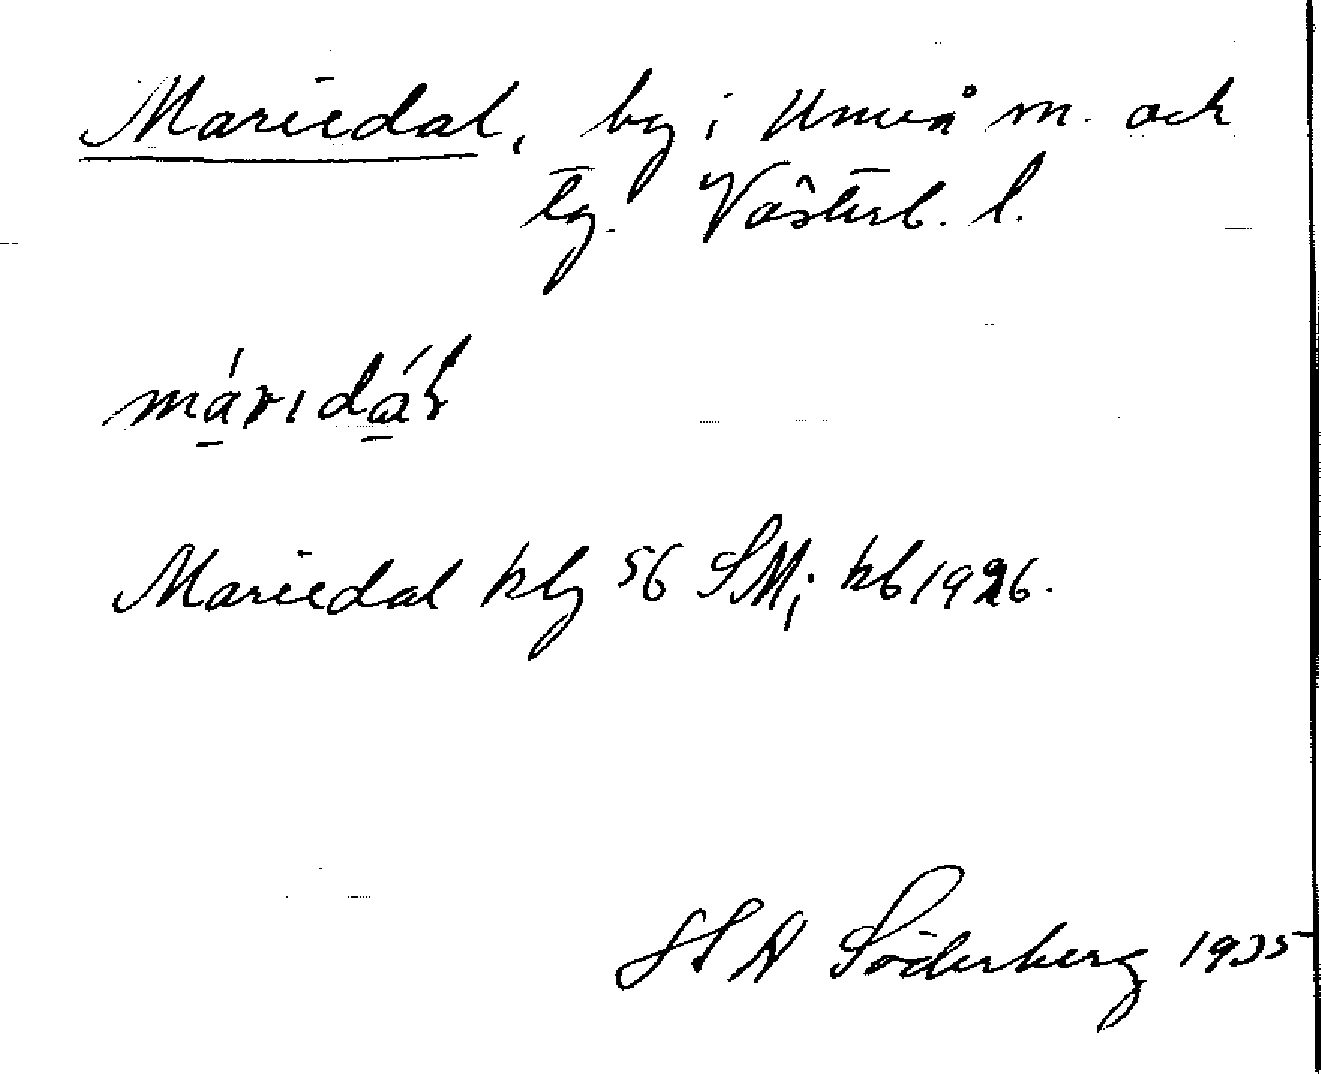 Mariedal, by i Umeå m. och
tg. Västerb. l.
máridáł
Mariedal klg 56 SM; kb 1926.
Söderberg 1935